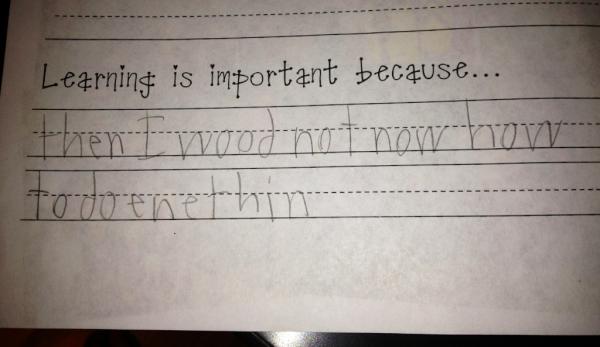 Learning is important because...
then I wood not now how
to do enethin